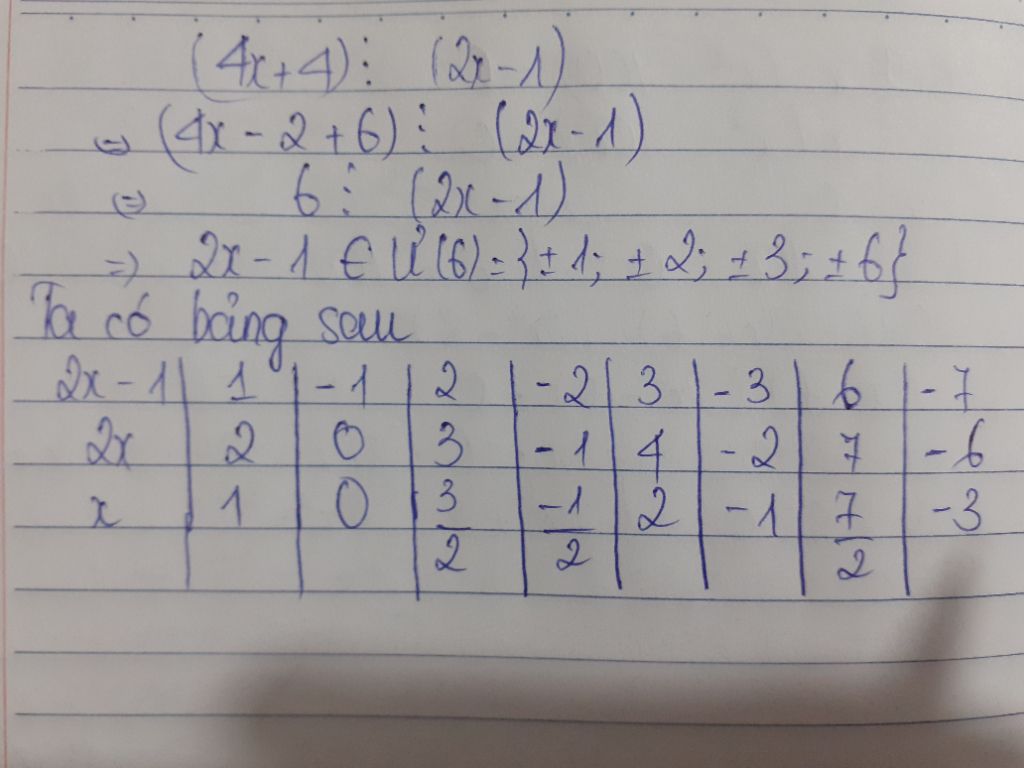 (4x+4) ⋮ (2x-1)
=> (4x - 2 + 6) ⋮ (2x-1)
=> 6 ⋮ (2x-1)
=> 2x - 1 ∈ Ư(6) = {± 1; ± 2; ± 3; ± 6}
Ta có bảng sau
2x - 1 | 1 | -1 | 2 | -2 | 3 | -3 | 6 | -7
2x | 2 | 0 | 3 | -1 | 4 | -2 | 7 | -6
x | 1 | 0 | 3/2 | -1/2 | 2 | -1 | 7/2 | -3